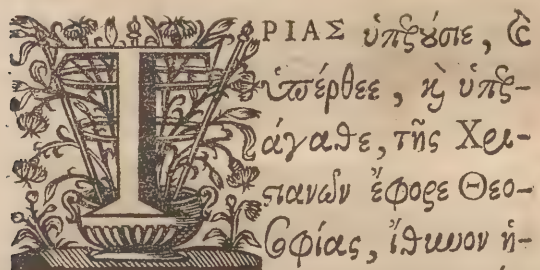 ΤΡΙΑΣ ὑπερούσιε, καὶ
ὑπέρθεε, καὶ ὑπερ-
άγαθε, τῆς Χρι-
στιανῶν ἔφορε Θεο-
σοφίας, ἴθυνον ἡ-